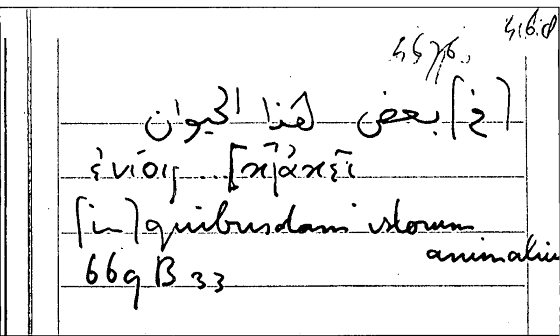 [في] بعض هذا الحيوان
ἐνίοις .. [κ]ἀκεῖ
[in] quibusdam istorum
animaliu
669 B 33